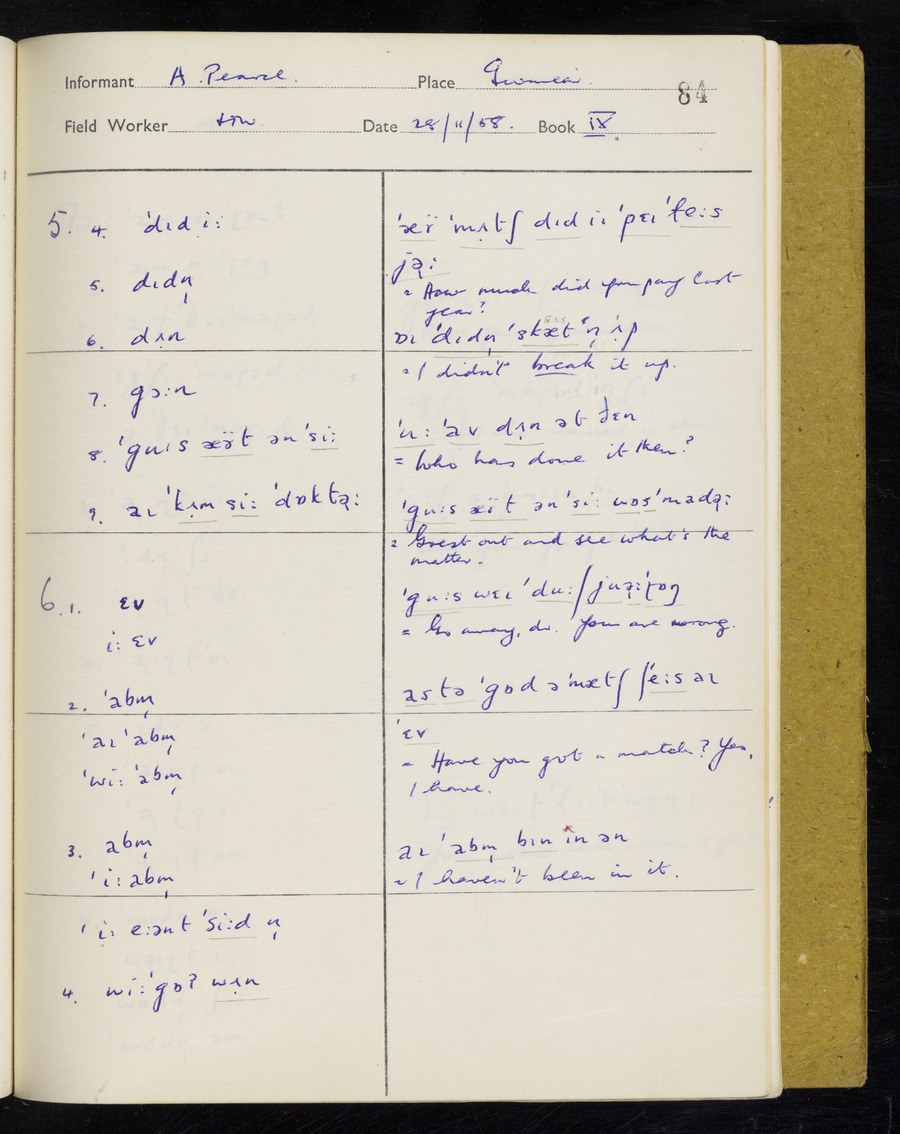 Informant A Pearce. Place
84
Field Worker Date 28/11/58. Book IX.
5. 4. ˈdɪd iː
5. dɪdn̩
6. dʌn
7. gɔːn
8. ˈguːs æʏt ənˈsiː
9. aɪ ˈkʌm siː ˈdɒktəː
6.1. ɛv
iː ɛv
2. ˈabm̩
ˈaɪ ˈabm̩
ˈwiː ˈabm̩
3. abm̩
ˈiː abm̩
ˈiː eːənt ˈsiːd n̩
4. wiːˈgɒʔ wʌn
ˈæʏ ˈmʌtʃ dɪd iː ˈpɛɪ ˈɫeːs
jəː
= How much did you pay last
year?
ɒɪ ˈdɪdn̩ ˈskæt n̩ ˈʌp
= I didn't break it up.
ˈuː ˈav dʌn ət ðɛn
= Who has done it then?
ˈguːs æʏt ənˈsiː wɒsˈmadəː
= Goest out and see what's the
matter.
ˈguːs wɛɪ ˈduː / juəːˈrɒŋ
= Go away, do. You are wrong.
astə ˈgɒd əˈmætʃ / ˈeːs aɪ
ˈɛv
= Have you got a match? Yes,
I have.
aɪ ˈabm̩ bɪn in ən
= I haven't been in it.